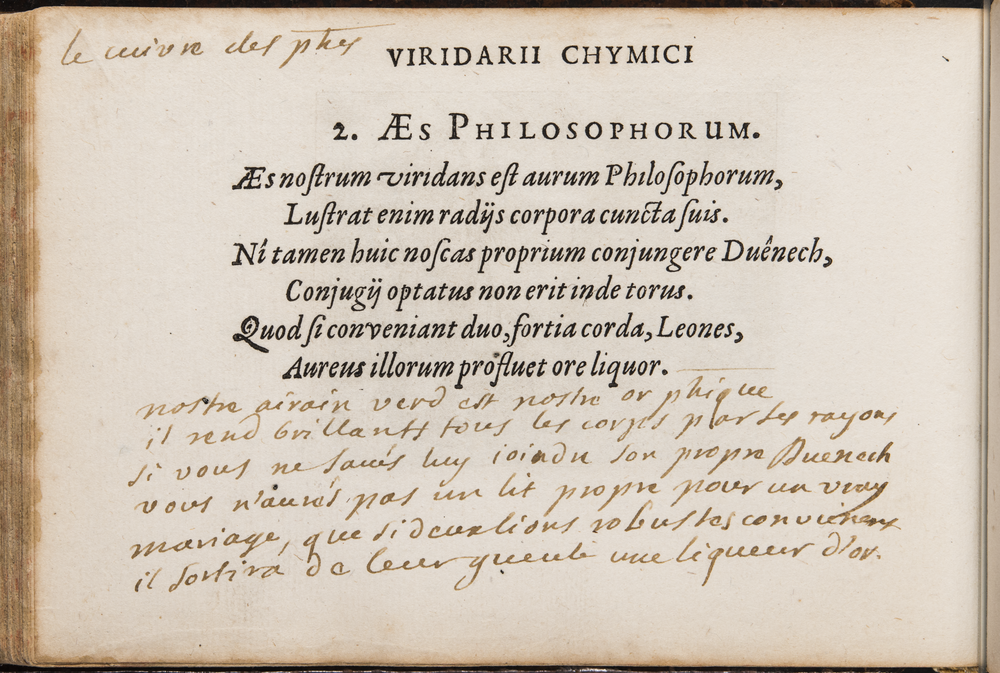 le cuivre des phes
VIRIDARII CHYMICI
2. ÆS PHILOSOPHORUM.
Æs noſtrum viridans eſt aurum Philoſophorum,
Luſtrat enim radijs corpora cuncta ſuis.
Nî tamen huic noſcas proprium conjungere Duênech,
Conjugij optatus non erit inde torus.
Quod ſi conveniant duo, fortia corda, Leones,
Aureus illorum profluet ore liquor.
nostre airain verd est nostre or phique
il rend brillants tous les corps par ses rayons
si vous ne savés luy joindre son propre Duenech
vous n'aurés pas un lit propre pour un vray
mariage, que si deux lions robustes conviennent
il sortira de leur gueule une liqueur d'or.